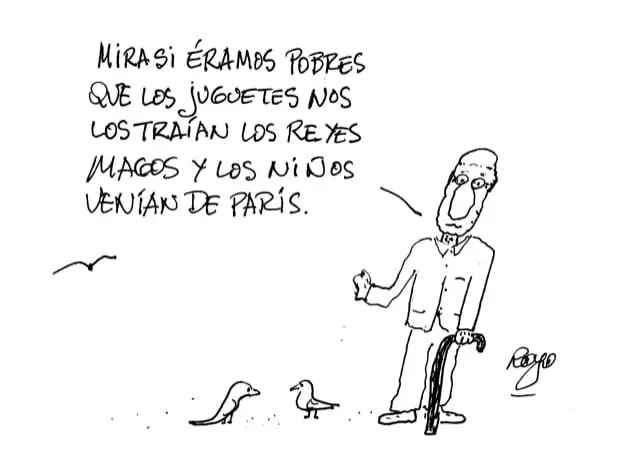 MIRA SI ÉRAMOS POBRES
QUE LOS JUGUETES NOS
LOS TRAÍAN LOS REYES
MAGOS Y LOS NIÑOS
VENÍAN DE PARÍS.
Royo